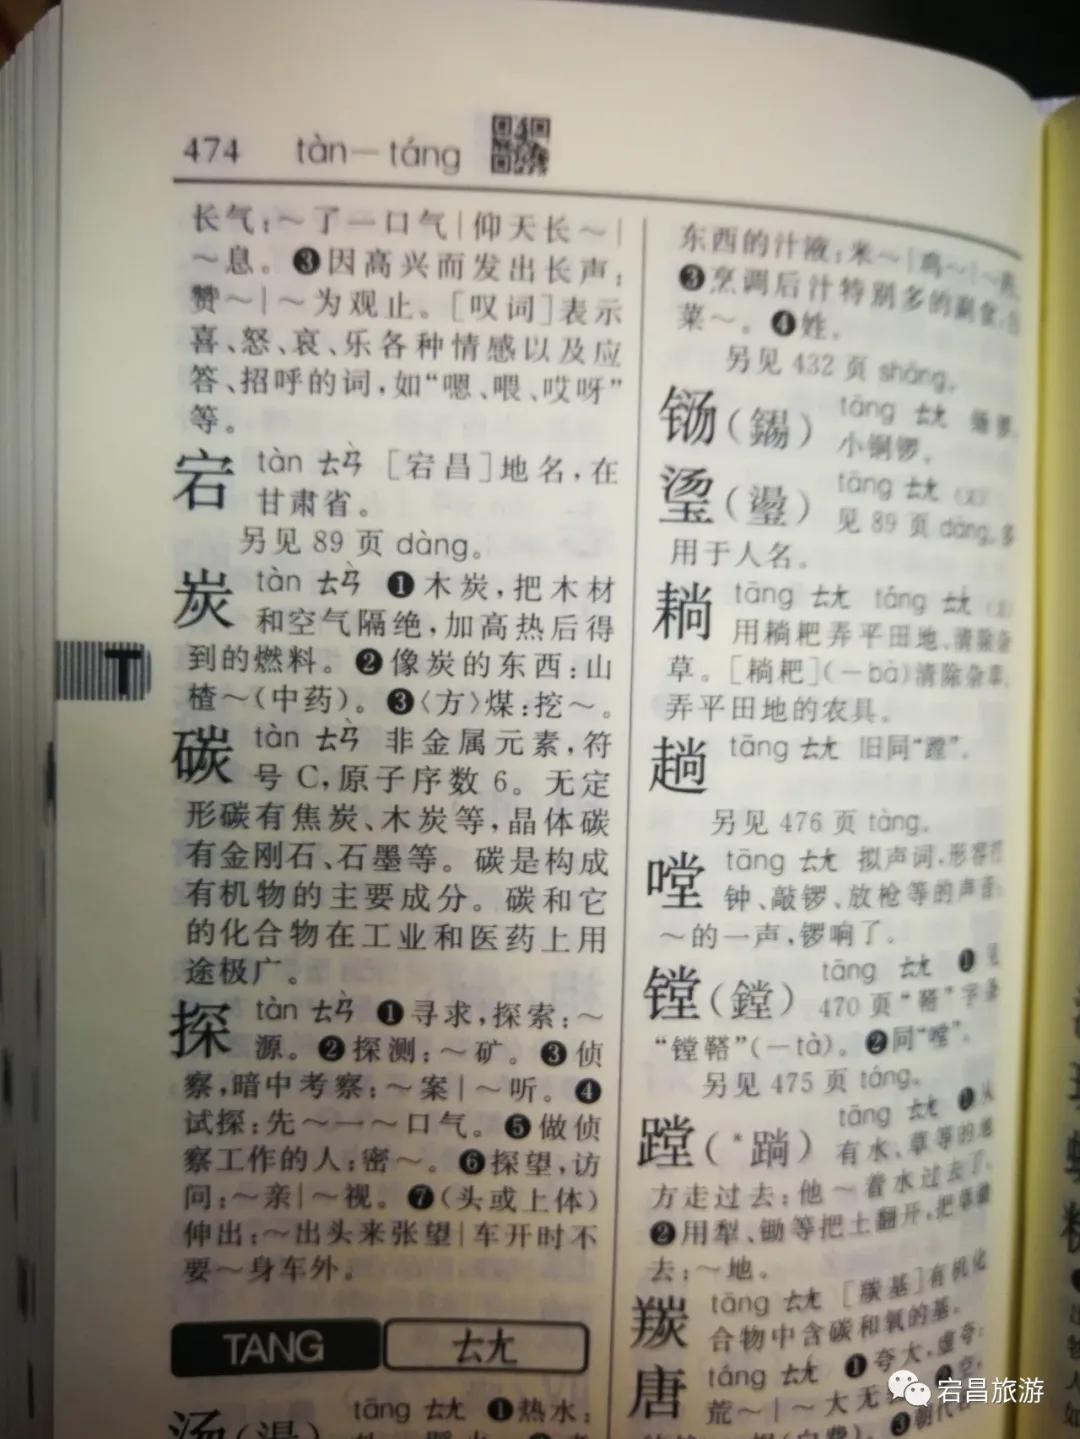 474 tàn—táng
长气:～了一口气|仰天长～|
～息。❸因高兴而发出长声:
赞～|～为观止。[叹词]表示
喜、怒、哀、乐各种情感以及应
答、招呼的词,如“嗯、喂、哎呀”
等。
宕 tàn ㄊㄢˋ [宕昌]地名,在
甘肃省。
另见 89 页 dàng。
炭 tàn ㄊㄢˋ ❶木炭,把木材
和空气隔绝,加高热后得
到的燃料。❷像炭的东西:山
楂～(中药)。❸〈方〉煤:挖～。
碳 tàn ㄊㄢˋ 非金属元素,符
号 C,原子序数 6。无定
形碳有焦炭、木炭等,晶体碳
有金刚石、石墨等。碳是构成
有机物的主要成分。碳和它
的化合物在工业和医药上用
途极广。
探 tàn ㄊㄢˋ ❶寻求,探索:～
源。❷探测:～矿。❸侦
察,暗中考察:～案|～听。❹
试探:先～一～口气。❺做侦
察工作的人:密～。❻探望,访
问:～亲|～视。❼(头或上体)
伸出:～出头来张望|车开时不
要～身车外。
TANG ㄊㄤ
汤(湯) tāng ㄊㄤ ❶热水:
东西的汁液:米～|鸡～|～
❸烹调后汁特别多的副食:
菜～。❹姓。
另见 432 页 shāng。
铴(鐋) tāng ㄊㄤ 铴锣,
小铜锣。
烫(盪) tāng ㄊㄤ
见 89 页 dàng。多
用于人名。
耥 tāng ㄊㄤ tǎng ㄊㄤ
用耥耙弄平田地、清除杂
草。[耥耙](—bà)清除杂草、
弄平田地的农具。
趟 tāng ㄊㄤ 旧同“蹚”。
另见 476 页 tàng。
嘡 tāng ㄊㄤ 拟声词,形容打
钟、敲锣、放枪等的声音:
～的一声,锣响了。
镗(鏜) tāng ㄊㄤ ❶见
470 页“鞳”字条
“镗鞳”(—tà)。❷同“嘡”。
另见 475 页 táng。
蹚(*踼) tāng ㄊㄤ ❶从
有水、草等的地
方走过去:他～着水过去了。
❷用犁、锄等把土翻开,把草锄
去:～地。
羰 tāng ㄊㄤ [羰基]有机化
合物中含碳和氧的基。
唐 táng ㄊㄤ ❶夸大,虚夸:
荒～|～大无
❸朝代
宕昌旅游